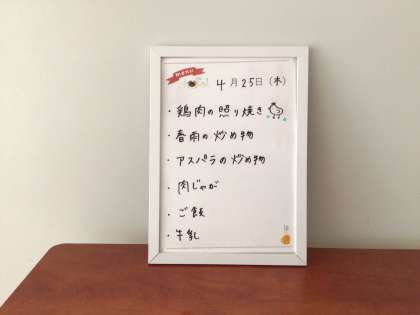 menu
4月25日(木)
・鶏肉の照り焼き
・春雨の炒め物
・アスパラの炒め物
・肉じゃが
・ご飯
・牛乳